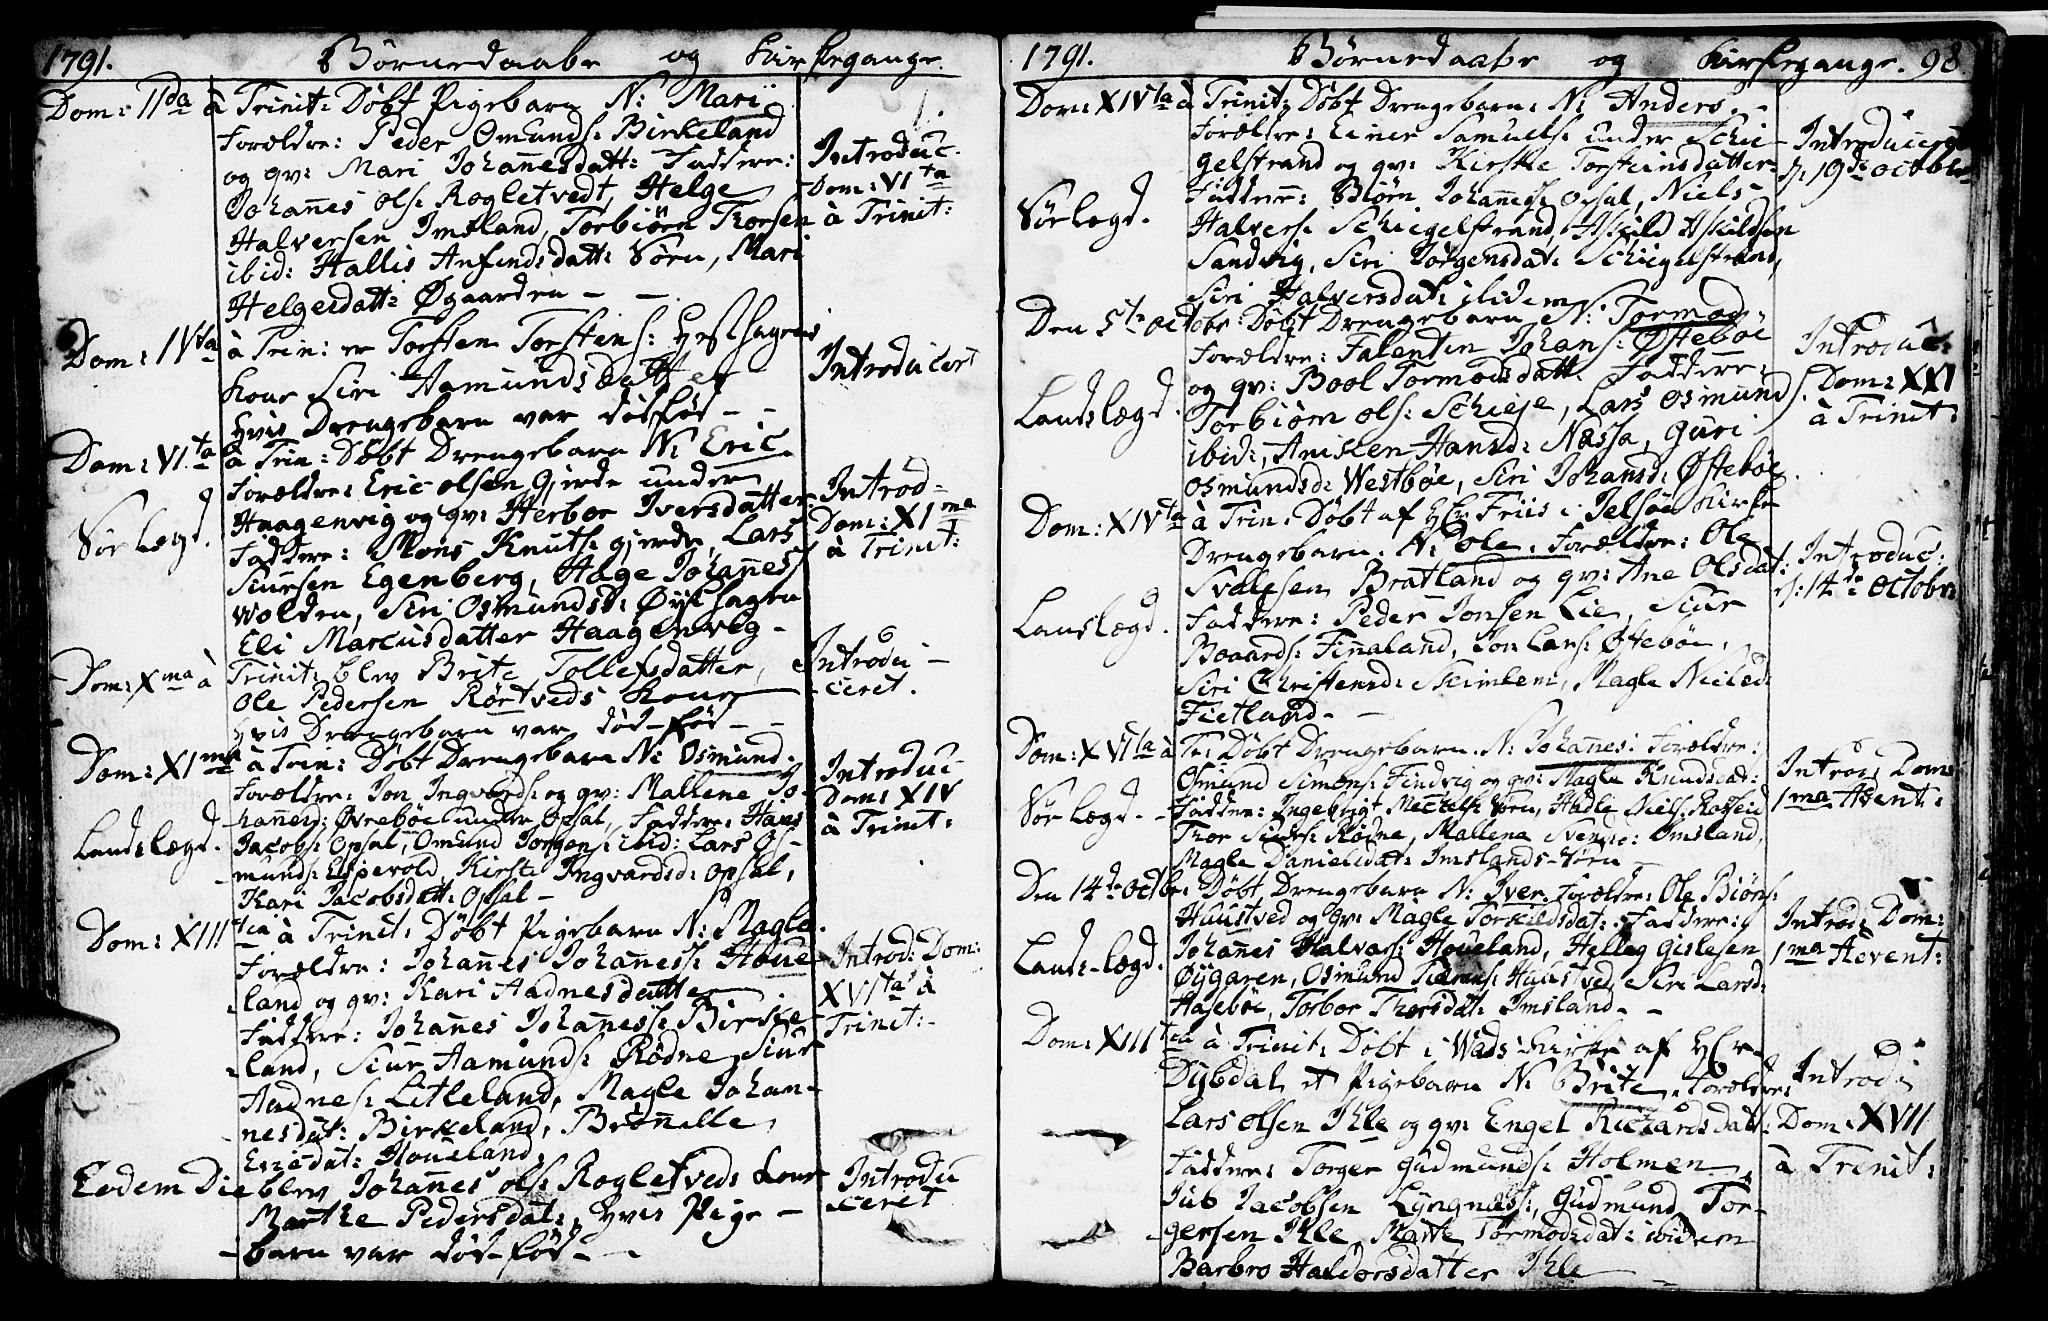 1791. Börnedaabe og Kirkegange.
Dom: IIda à Trinit: Döbt Pigebarn N: Mari
Forældre: Peder Omunds: Birkeland
og qv: Mari Johannesdatt: Faddere:
Johannes ols: Rogletvedt, Helge
Halversen Imsland, Torbiörn Thorsen
ibid: Hallis Anfindsdatt: Vörn, Mari
Helgesdatt: Øgaarden -
Introduc.
Dom: VIta
à Trinit:
Dom: IVta à Trin: er Torsten Torstens:
Kone Siri Aamundsdatter
hvis Drengebarn var dödfôd -
Introducert
Dom: VIta à Trin: Döbt Drengebarn N: Eric
Forældre: Eric olsen Gjerde under
Haagenvig og qv: Herbor Iversdatter
Faddere: Mons Knuts: gjerde, Lars
Siursen Egenberg, Hage Johannes:
Wolden, Siri Osmundsd: Øyehagen
Eli Marcusdatter Haagenvig -
Sör Lægd.
Introd=
Dom: XIma
à Trinit:
Dom: Xma à Trinit: blev Brite Tollefsdatter,
Ole Pedersen Rörtveds Kone
hvis Drengebarn var död-föd -
Introdu-
ceret.
Dom: XIma à Trin: Döbt Drengebarn N: Osmund.
Forældre: Jon Ingvards: og qv: Mallene Jo-
hannesd: Øvreböe under Opsal, Faddere: Hans
Jacobs: Opsal, Omund Jorgens: ibid: Lars Os-
munds: Espevold, Kirste Ingvardsd: Opsal,
Kari Jacobsdatt: Opsal -
Landslægd.
Introduc-
Dom: XIV
à Trinit:
Dom: XIIItia à Trinit: Döbt Pigebarn N: Magle.
Forældre: Johannes Johanness: Houe-
land og qv: Kari Aadnesdatter
Faddere: Johannes Johanness: Birke-
land, Siur Aamunds: Rödne, Siur
Aadnes: Litleland, Magle Johan-
nesdat: Birkeland, Brônnelle
Ericsdat: Houeland.
Introd: Dom:
XVIta à
Trinit:
Eodem Die blev Johannes ols: Rogletveds Kone
Marthe Pedersdat:, hvis Pige-
barn var död-föd -
Introdu
ceret
1791. Börnedaabe og Kirkegange. 98
Dom: XIVta à Trinit: Döbt Drengebarn: N: Anders.
Forældre: Einer Samuels: under Schie
gelstrand og qv: Kirstie Torsteinsdatter
Faddere: Biörn Johannes: Opsal, Niels
Halvers: Schiegelstrand, Askild Askildsen
Sandvig, Siri Jörgensdat: Schiegelstrand,
Siri Halversdat: ibidem
Sör Lægd.
Introduceret
d: 19de octobr:
Den 5te octobr: Döbt Drengebarn N: Tormod
Forældre: Falentin Johans: Østeböe
og qv: Bool Tormodsdatt: Faddere:
Torbiörn ols: Schieje, Lars Osmunds:
ibid:, Anichen Hansd: Næssa, Guri
Osmundsd: Westböe, Siri Johansd: Østeböe.
Landslægd.
Introduc:
Dom: XXI
à Trinit:
Dom: XIVta à Trin: Döbt af Hr Friis i Jelsöe Kirke
Drengebarn. N: ole. Forældre: Ole
Svalesen Bratland og qv: Ane Olsdat:
Faddere: Peder Jonsen Lie, Siur
Boaards: Finnaland, Jon Lars: Østeböe,
Siri Christensd: Skimlem, Magle Nielsd:
Fietland -
Landslægd.
Introduc:
d: 14de Octobr:
Dom: XVIta à Tr: Döbt Drengebarn. N: Johannes: Forældre:
Osmund Simons: Findvig og qv: Magle Knudsdat:
Faddere: Ingebrigt Mickels: Vörn, Hadle Niels:
Thor Siurs: Rödne, Mallena Svends: Omsland,
Magle Danielsdat: Imslands-Vörn
Sör Lægd.
Introd: Dom:
1ma Advent:
Den 14de Octbr: Döbt Drengebarn N: Iver. Forældre: Ole Biörns:
Haustved og qv: Magle Torkildsdat: Faddere:
Johannes Halvars: Houeland, Helleg Gislesen
Öÿgaren, Osmund Haustved, Siri Larsd:
Hageböe, Torbor Thorsdat: Imsland -
Lands-lægd.
Introd: Dom:
1ma Advent:
Dom: XIIItia à Trinit: Döbt i Wads Kirke af Hr
Dybdal et Pigebarn N: Brite. Forældre:
Lars olsen Ihle og qv: Engel Richardsdatt:
Faddere: Torger Gudmunds: Holmen,
Jub Jacobsen Lyngnæss:, Gudmund Tor-
gersen Ihle, Marte Tormodsdat: ibidem
Barbro Haldorsdatter Ihle
Introd:
Dom: XVII
à Trinit: